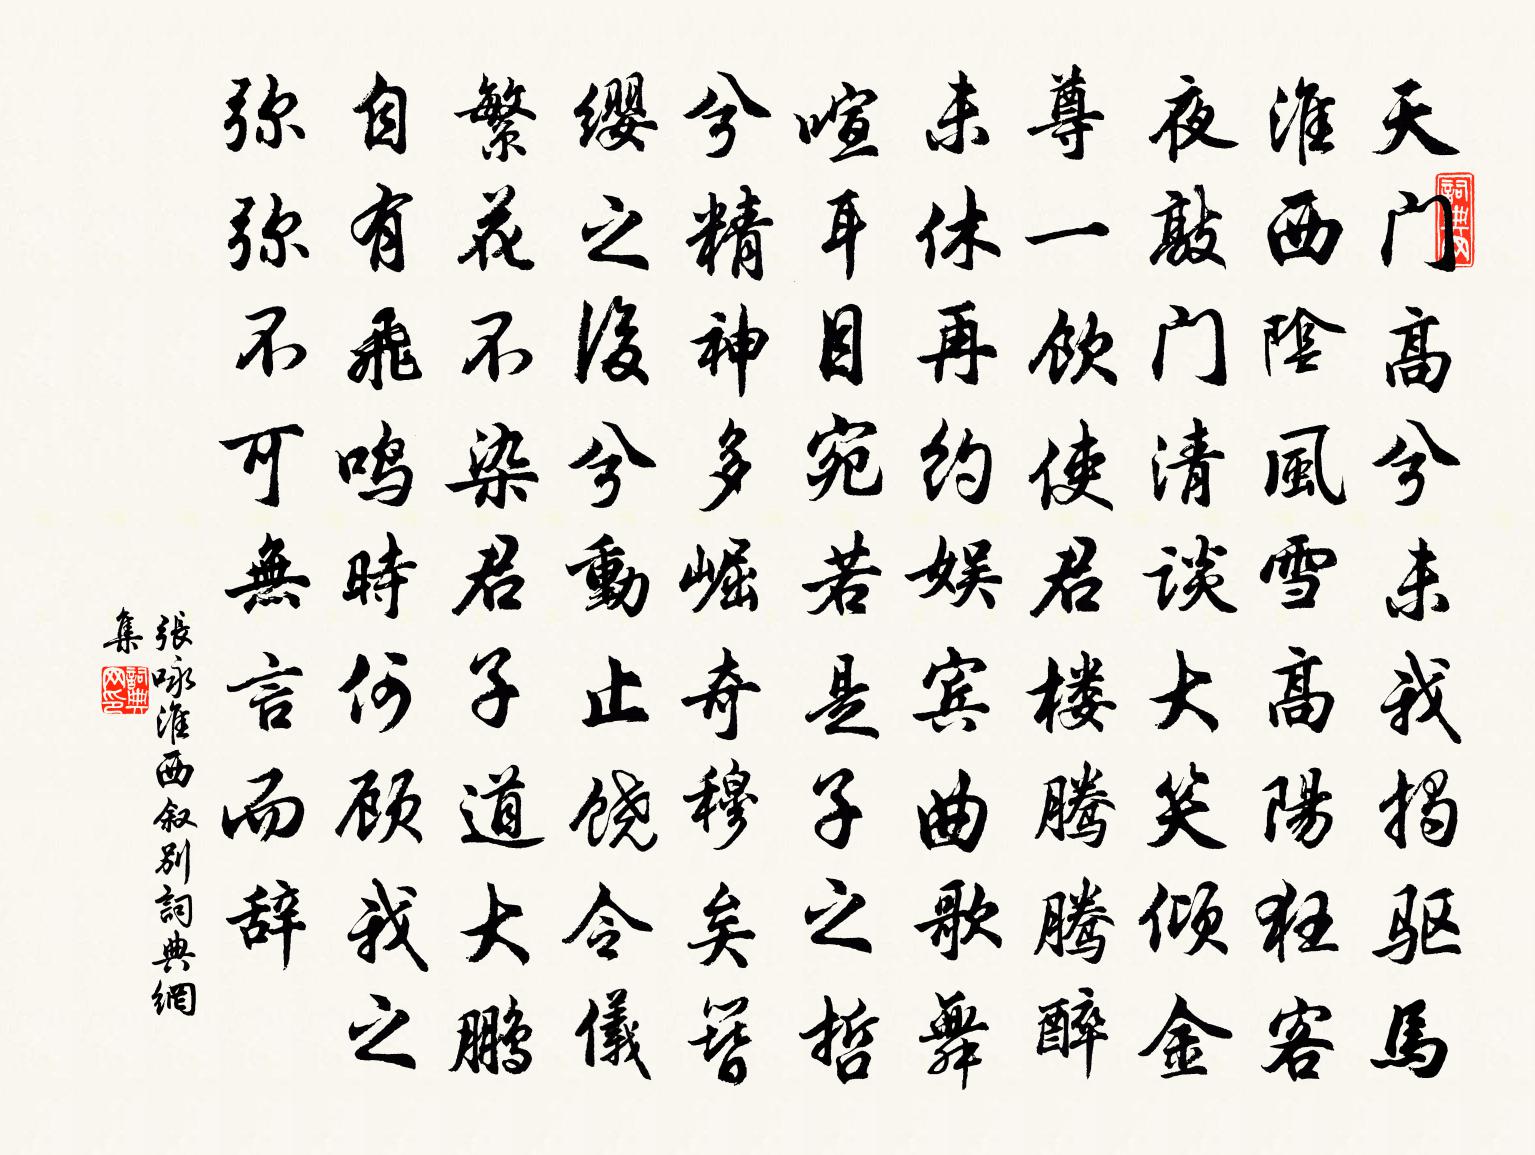 天门高兮未我揭驱馬
淮西陰風雪高陽狂客
夜敲门清谈大笑倾金
尊一飲使君楼腾腾醉
未休再约娱宾曲歌舞
喧耳目宛若是子之哲
兮精神多崛奇穆矣簪
缨之後兮動止饶令儀
繁花不染君子道大鹏
自有飛鸣時何顾我之
弥弥不可無言而辞
張咏淮西叙别詞典網
集
詞典网
詞典网印